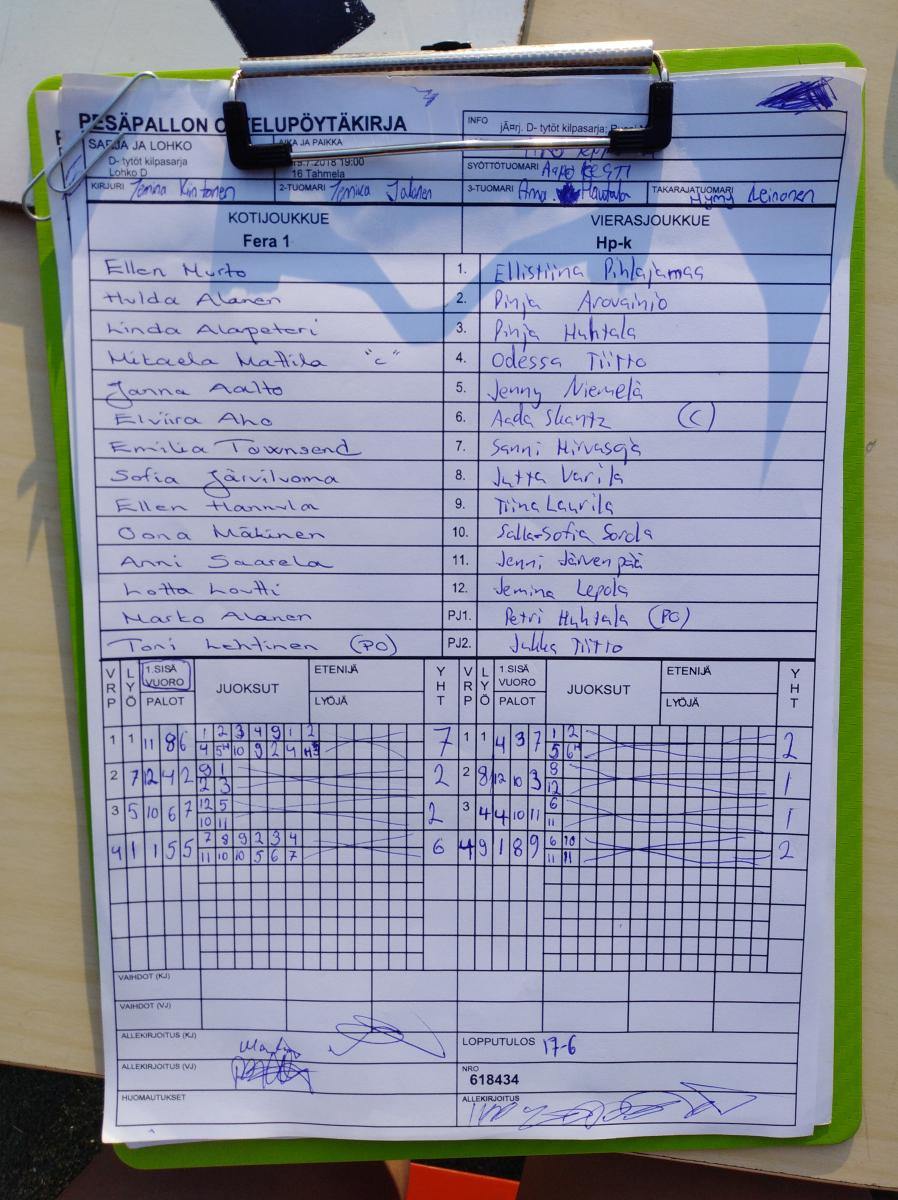 PESÄPALLON OTTELUPÖYTÄKIRJA
INFO
jÃ¤rj. D- tytöt kilpasarja:
SARJA JA LOHKO
D- tytöt kilpasarja
Lohko D
AIKA JA PAIKKA
19.7.2018 19:00
16 Tahmela
SYÖTTÖTUOMARI
KIRJURI
2-TUOMARI
3-TUOMARI
TAKARAJATUOMARI Leinonen
KOTIJOUKKUE VIERASJOUKKUE
Fera 1 Hp-k
Ellen Murto 1. Ellistiina Pihlajamaa
Hulda Alanen 2. Pinja Arovainio
Linda Alapeteri 3. Pinja Huhtala
Mikaela Mattila "c" 4. Odessa Tiitto
Janna Aalto 5. Jenny Niemelä
Elviira Aho 6. Aada Skantz (C)
Emilia Townsend 7. Sanni Hirvasoja
Sofia Järviluoma 8. Jutta Varila
Ellen Hannula 9. Tiina Laurila
Oona Mäkinen 10. Salla-Sofia Sorola
Anni Saarela 11. Jenni Järvenpää
Lotta Loutti 12. Jemina Lepola
Marko Alanen PJ1. Petri Huhtala (PO)
Toni Lehtinen (PO) PJ2. Jukka Tiitto
VRP LYÖ 1.SISÄ VUORO PALOT JUOKSUT ETENIJÄ LYÖJÄ YHT VRP LYÖ 1.SISÄ VUORO PALOT JUOKSUT ETENIJÄ LYÖJÄ YHT
1 1 11 8 6 1 2 3 4 9 1 2 7 1 1 4 3 7 1 2 2
4 5H 10 9 2 4 5 6H
2 7 12 4 2 9 1 2 2 8 12 10 3 8 1
2 3 12
3 5 10 6 7 12 5 2 3 4 4 10 11 6 1
10 11 11
4 1 1 5 5 7 8 9 2 3 4 6 4 9 1 8 9 6 10 2
11 10 10 5 6 7 11 11
VAIHDOT (KJ)
VAIHDOT (VJ)
ALLEKIRJOITUS (KJ) LOPPUTULOS 17-6
ALLEKIRJOITUS (VJ) NRO
618434
HUOMAUTUKSET ALLEKIRJOITUS